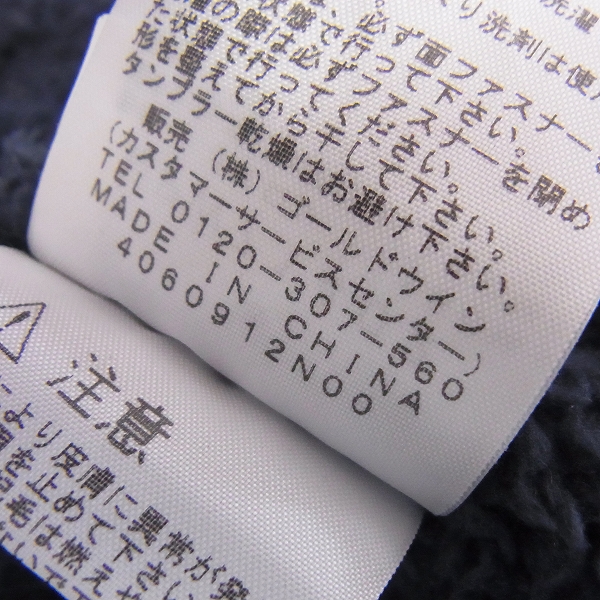 洗濯
くり洗剤は使
。必ず面ファスナー
状態で行って下さい。
の際は必ずファスナーを閉め
た状態で行ってください。
形を整えてから干して下さい。
タンブラー乾燥はお避け下さい。
販売 (株) ゴールドウイン
(カスタマーサービスセンター)
TEL 0120-307-560
MADE IN CHINA
4060912N00
注意
により皮膚に異常が
を止めて下さい
毛は燃え